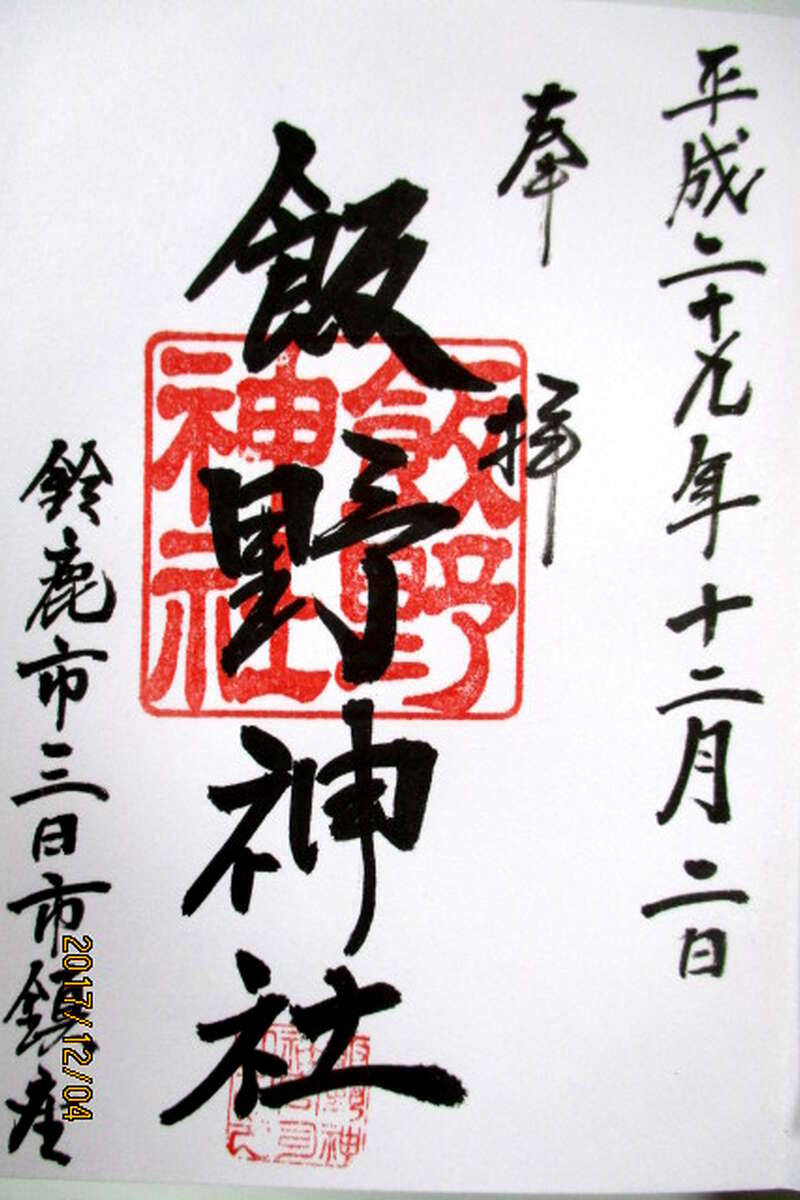 平成二十九年十二月二日
奉拝
飯野神社
飯野
神社
鈴鹿市三日市鎮座
2017/12/04